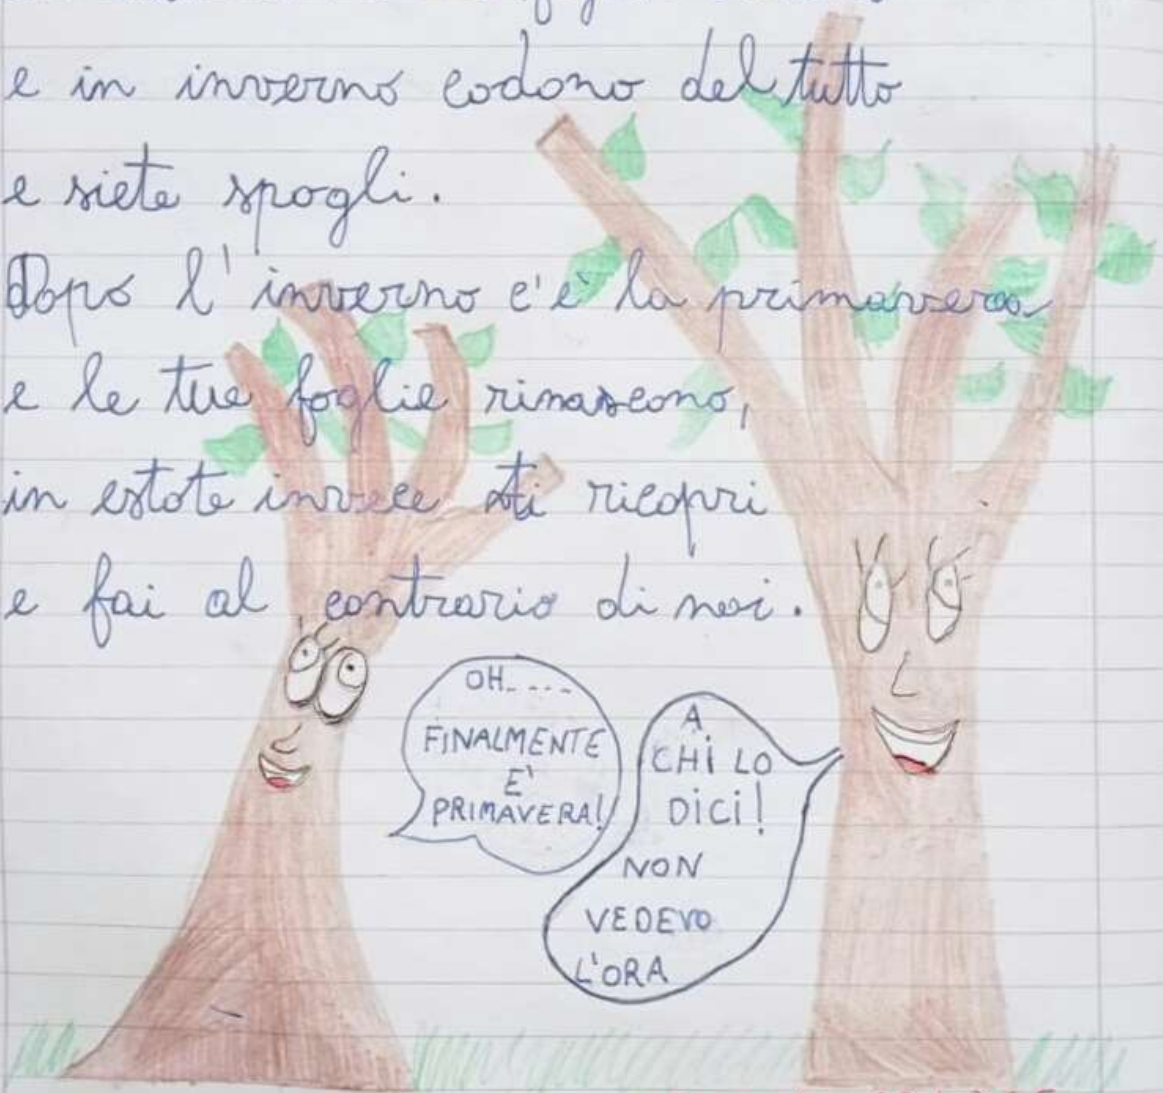 e in inverno cadono del tutto
e siete spogli.
Dopo l'inverno c'è la primavera
e le tue foglie rinascono,
in estate invece ti ricopri
e fai al contrario di noi.
OH.....
FINALMENTE
E'
PRIMAVERA!
A
CHI LO
DICI!
NON
VEDEVO
L'ORA